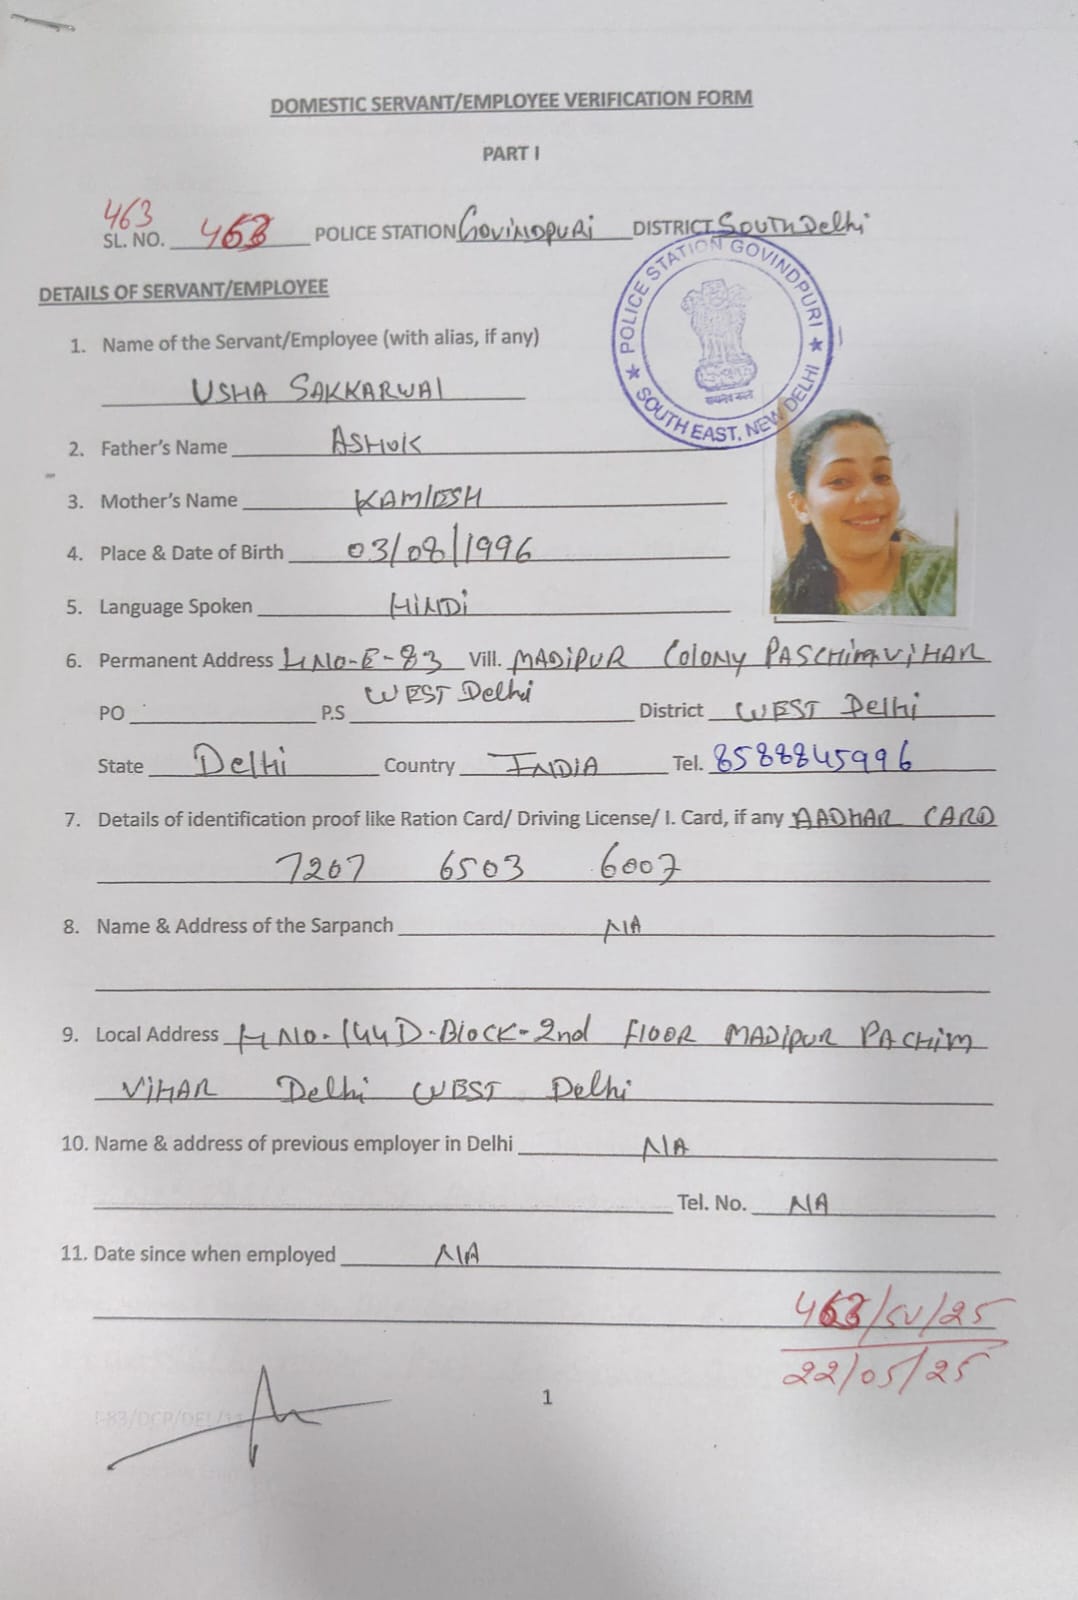 DOMESTIC SERVANT/EMPLOYEE VERIFICATION FORM
PART I
463
SL. NO. 463 POLICE STATION GOVINDPURI DISTRICT SOUTH Delhi
POLICE STATION GOVINDPURI
SOUTH EAST, NEW DELHI
सत्यमेव जयते
DETAILS OF SERVANT/EMPLOYEE
1. Name of the Servant/Employee (with alias, if any)
USHA SAKKARWAl
2. Father's Name ASHOK
3. Mother's Name KAMlESH
4. Place & Date of Birth 03/08/1996
5. Language Spoken HiNDi
6. Permanent Address HNO-E-83 Vill. MADiPUR ColoNy PASCHimViHAR
WEST Delhi
PO P.S District WEST Delhi
State Delhi Country INDIA Tel. 8588845996
7. Details of identification proof like Ration Card/ Driving License/ I. Card, if any AADHAR CARD
7207 6503 6007
8. Name & Address of the Sarpanch N/A
9. Local Address H NO-144 D-BlOCK-2nd FlOOR MADIPUR PACHiM
ViHAR Delhi WEST Delhi
10. Name & address of previous employer in Delhi N/A
Tel. No. NA
11. Date since when employed N/A
463/SV/25
22/05/25
1